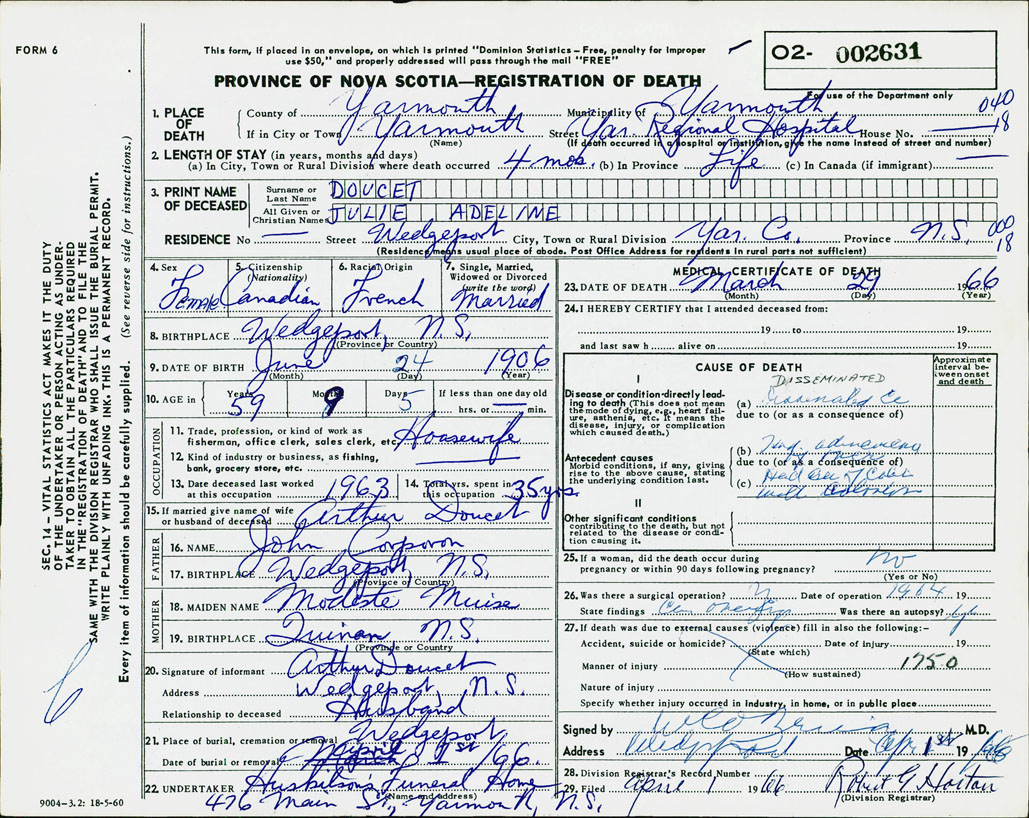 FORM 6
This form, if placed in an envelope, on which is printed "Dominion Statistics – Free, penalty for improper
use $50," and properly addressed will pass through the mail "FREE"
O2- 002631
PROVINCE OF NOVA SCOTIA—REGISTRATION OF DEATH
For use of the Department only
1. PLACE OF DEATH
County of Yarmouth Municipality of Yarmouth 040
If in City or Town Yarmouth Street Yar. Regional Hospital House No. — 18
(Name) (If death occurred in a hospital or institution, give the name instead of street and number)
2. LENGTH OF STAY (in years, months and days)
(a) In City, Town or Rural Division where death occurred 4 mos. (b) In Province Life (c) In Canada (if immigrant) —
3. PRINT NAME OF DECEASED
Surname or Last Name DOUCET
All Given or Christian Names JULIE ADELINE
RESIDENCE No — Street Wedgeport City, Town or Rural Division Yar. Co. Province N.S. 000 18
(Residence means usual place of abode. Post Office Address for residents in rural parts not sufficient)
4. Sex Female
5. Citizenship (Nationality) Canadian
6. Racial Origin French
7. Single, Married, Widowed or Divorced (write the word) Married
8. BIRTHPLACE Wedgeport, N.S.
(Province or Country)
9. DATE OF BIRTH June 24 1906
(Month) (Day) (Year)
10. AGE in Years 59 Months 9 Days 5 If less than one day old
hrs. or — min.
OCCUPATION
11. Trade, profession, or kind of work as
fisherman, office clerk, sales clerk, etc. Housewife
12. Kind of industry or business, as fishing,
bank, grocery store, etc. —
13. Date deceased last worked
at this occupation 1963
14. Total yrs. spent in
this occupation 35 yrs.
15. If married give name of wife
or husband of deceased Arthur Doucet
FATHER
16. NAME John Corporon
17. BIRTHPLACE Wedgeport, N.S.
(Province or Country)
MOTHER
18. MAIDEN NAME Modeste Muise
19. BIRTHPLACE Quinan, N.S.
(Province or Country)
20. Signature of informant Arthur Doucet
Address Wedgeport, N.S.
Relationship to deceased Husband
21. Place of burial, cremation or removal Wedgeport
Date of burial or removal April 1st /66.
22. UNDERTAKER Huskilson's Funeral Home
(Name and address)
476 Main St., Yarmouth, N.S.
9004–3.2: 18-5-60
MEDICAL CERTIFICATE OF DEATH
23. DATE OF DEATH March 29 1966
(Month) (Day) (Year)
24. I HEREBY CERTIFY that I attended deceased from:
19 to 19
and last saw h alive on 19
CAUSE OF DEATH
Approximate interval between onset and death
I
DISSEMINATED
Disease or condition directly leading to death (This does not mean the mode of dying, e.g., heart failure, asthenia, etc. It means the disease, injury, or complication which caused death.)
(a)
due to (or as a consequence of)
Antecedent causes
Morbid conditions, if any, giving rise to the above cause, stating the underlying condition last.
(b)
due to (or as a consequence of)
(c)
II
Other significant conditions
contributing to the death, but not related to the disease or condition causing it.
25. If a woman, did the death occur during
pregnancy or within 90 days following pregnancy? No
(Yes or No)
26. Was there a surgical operation? Date of operation 1964
State findings Was there an autopsy?
27. If death was due to external causes (violence) fill in also the following:–
Accident, suicide or homicide? Date of injury 19
(State which)
Manner of injury 1750
(How sustained)
Nature of injury
Specify whether injury occurred in industry, in home, or in public place
Signed by M.D.
Address Wedgeport Date Apr 1st 1966
28. Division Registrar's Record Number
29. Filed April 1 1966 Robert G. Horton
(Division Registrar)
SEC. 14 – VITAL STATISTICS ACT MAKES IT THE DUTY
OF THE UNDERTAKER OR PERSON ACTING AS UNDER-
TAKER TO OBTAIN ALL THE PARTICULARS REQUIRED
IN THE "REGISTRATION OF DEATH" AND TO FILE THE
SAME WITH THE DIVISION REGISTRAR WHO SHALL ISSUE THE BURIAL PERMIT.
WRITE PLAINLY WITH UNFADING INK. THIS IS A PERMANENT RECORD.
Every item of information should be carefully supplied. (See reverse side for instructions.)